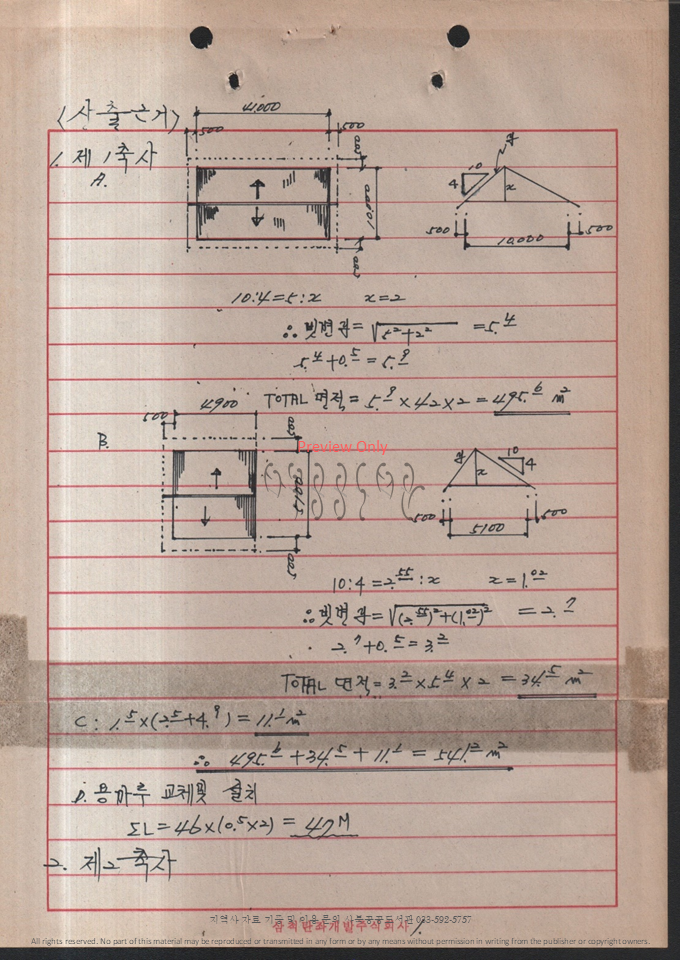 〈산출근거〉
1. 제1축사
A.
41,000
500
500
500
10,000
500
10
4
x
500
10,000
500
10:4=5:x x=2
∴ 빗변길=√5²+2² =5.4
5.4+0.5=5.9
TOTAL 면적=5.9×42×2=495.6 m²
B.
4900
500
500
5100
500
10
4
x
500
5100
500
Preview Only
10:4=2.55:x x=1.02
∴빗변길=√(2.55)²+(1.02)² =2.7
2.7+0.5=3.2
TOTAL 면적=3.2×5.4×2=34.5 m²
C: 1.5×(2.5+4.9)=11.1 m²
∴ 495.6+34.5+11.1=541.2 m²
D. 용마루 교체및 설치
ΣL=46×(0.5×2)=47M
2. 제2축사
삼척탄좌개발주식회사
지역사 자료 기증 및 이용 문의 사북공공도서관 033-592-5757
All rights reserved. No part of this material may be reproduced or transmitted in any form or by any means without permission in writing from the publisher or copyright owners.